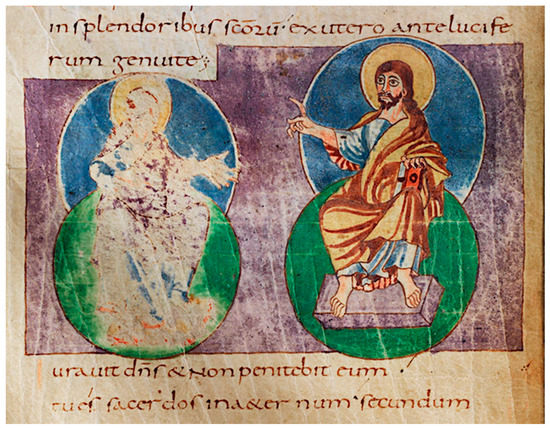 in splendoribus scōrū· exutero antelucife
rum genuite;
uravit dn̄s & Non penitebit eum
tu es sacerdos inaeter num· secundum